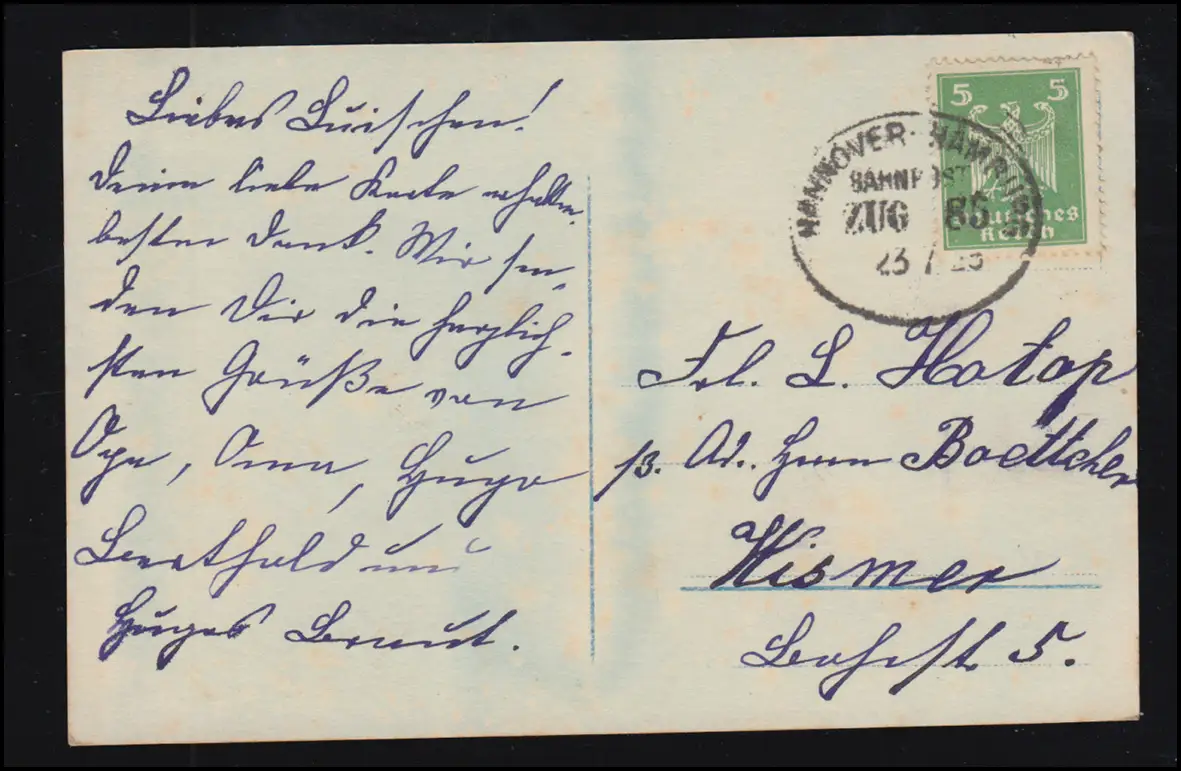 Liebes Luischen!
Deine liebe Karte erhalten
besten Dank. Wir sen-
den Dir die herzlich-
sten Grüße von
Opa, Oma, Hugo
Berthold und
Hugos Braut.
5 5
Deutsches
Reich
HANNOVER-HAMBURG
BAHNPOST
ZUG
23 7
Frl. L. Hotop
p. Ad. Herrn Boettcher
Wismar
5.